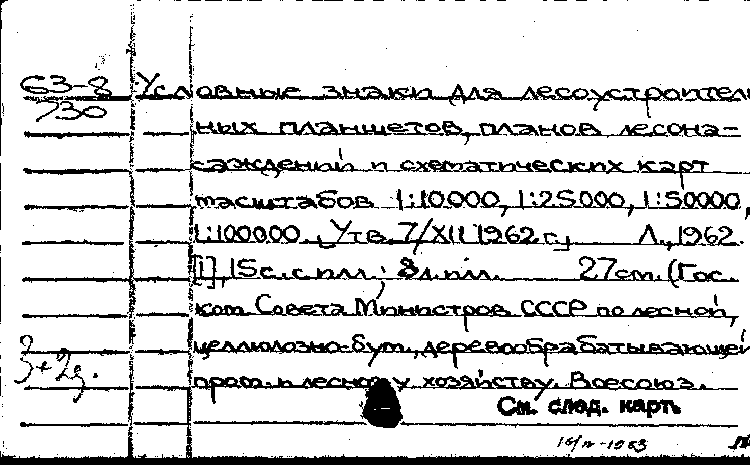 63-8 Условные знаки для лесоустроитель
730
ных планшетов, планов лесона-
саждений и схематических карт
масштабов 1:10000, 1:25000, 1:50000,
1:100000. Утв. 7/XII 1962 г. Л., 1962.
[1], 15 с. с илл.; 3 л. илл. 27 см. (Гос.
ком. Совета Министров СССР по лесной,
целлюлозно-бум., деревообрабатывающей
3+2д.
пром. и лесному хозяйству. Всесоюз.
См. след. карт.
16/IV-1963